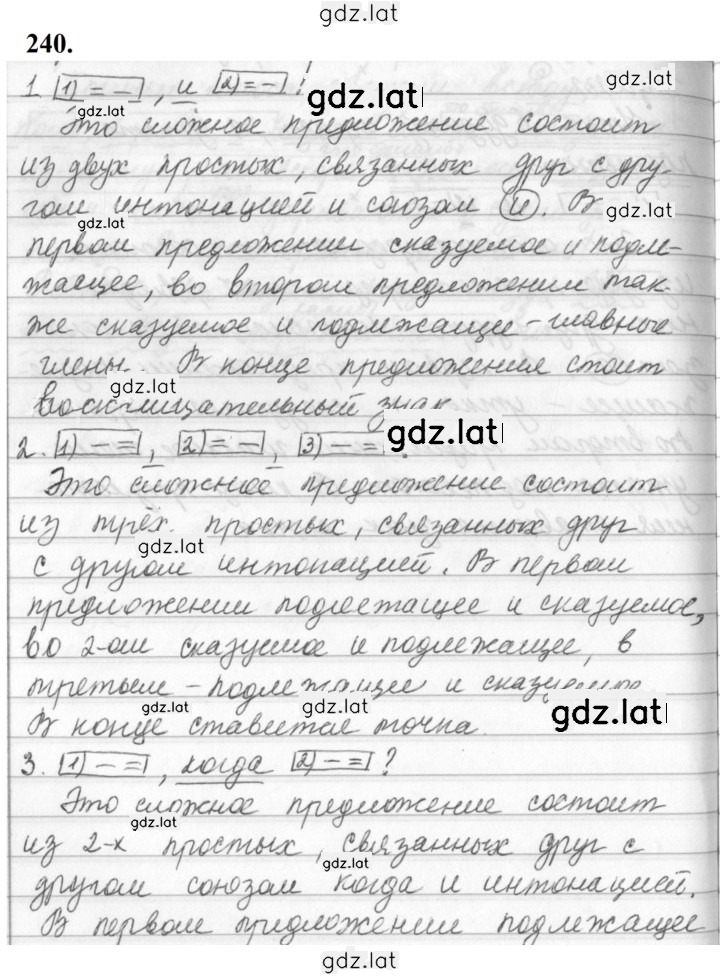 gdz.lat
240.
1. [1) = —], и [2) = —]!
gdz.lat
gdz.lat
gdz.lat
Это сложное предложение состоит
из двух простых, связанных друг с дру-
гом интонацией и союзом и. В
gdz.lat
gdz.lat
первом предложении сказуемое и подле-
жащее, во втором предложении так-
же сказуемое и подлежащее - главные
члены. В конце предложения стоит
gdz.lat
восклицательный знак
2. [1) — =], [2) = —], [3) — =].
gdz.lat
Это сложное предложение состоит
из трёх простых, связанных друг
gdz.lat
с другом интонацией. В первом
предложении подлежащее и сказуемое,
во 2-ом сказуемое и подлежащее, в
третьем - подлежащее и сказуемое
gdz.lat
gdz.lat
gdz.lat
В конце ставится точка.
3. [1) — =], когда [2) — =]?
Это сложное предложение состоит
gdz.lat
из 2-х простых, связанных друг с
gdz.lat
другом союзом когда и интонацией.
В первом предложении подлежащее
gdz.lat